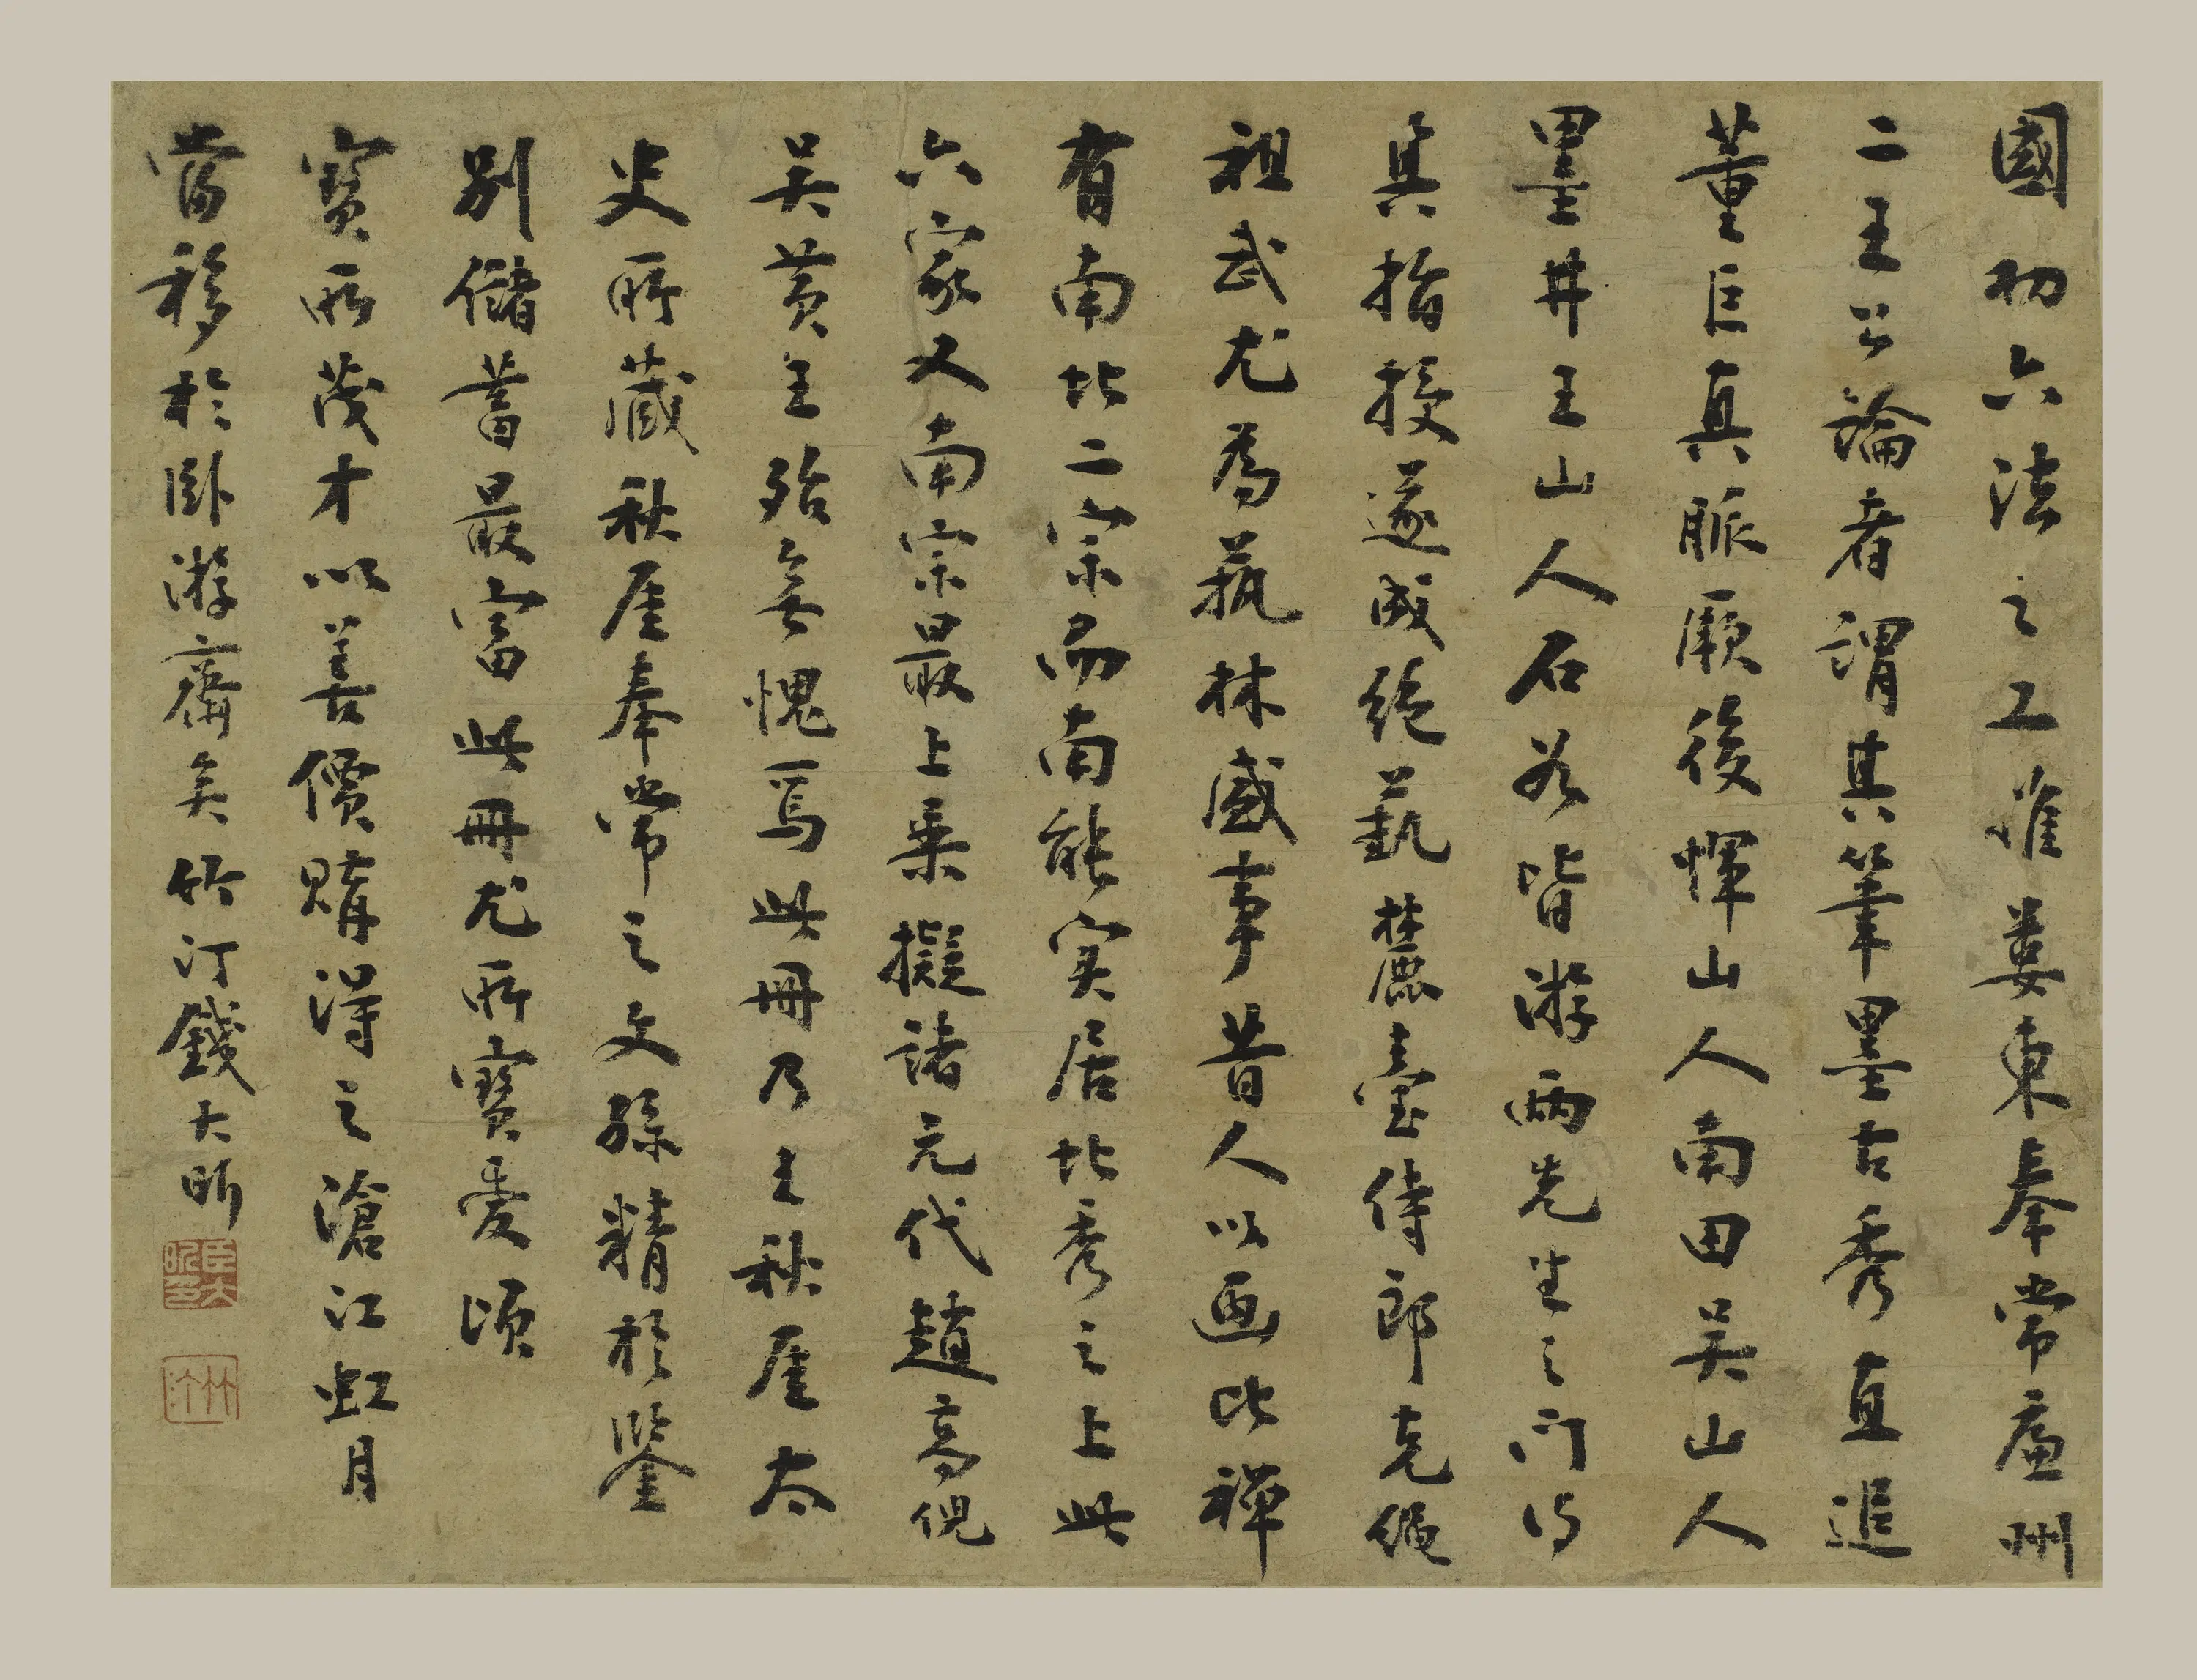 國初六法之工推婁東奉常廉州
二王公論者謂其筆墨古秀直追
董巨真脈厥後惲山人南田吳山人
墨井王山人石谷皆游兩先生之門得
其指授遂成絕藝麓臺侍郎克繩
祖武尤為蓺林盛事昔人以画比禪
有南北二宗而南能实居北秀之上此
六家又南宗最上乘擬諸元代趙高倪
吴黄王殆無愧焉此冊乃王秋厓太
史所藏秋厓奉常之文孫精於鑒
別儲蓄最富此冊尤所寶愛頃
寶所茂才以善價購得之滄江虹月
當移於臥游齋矣竹汀錢大昕
臣大昕印
竹汀